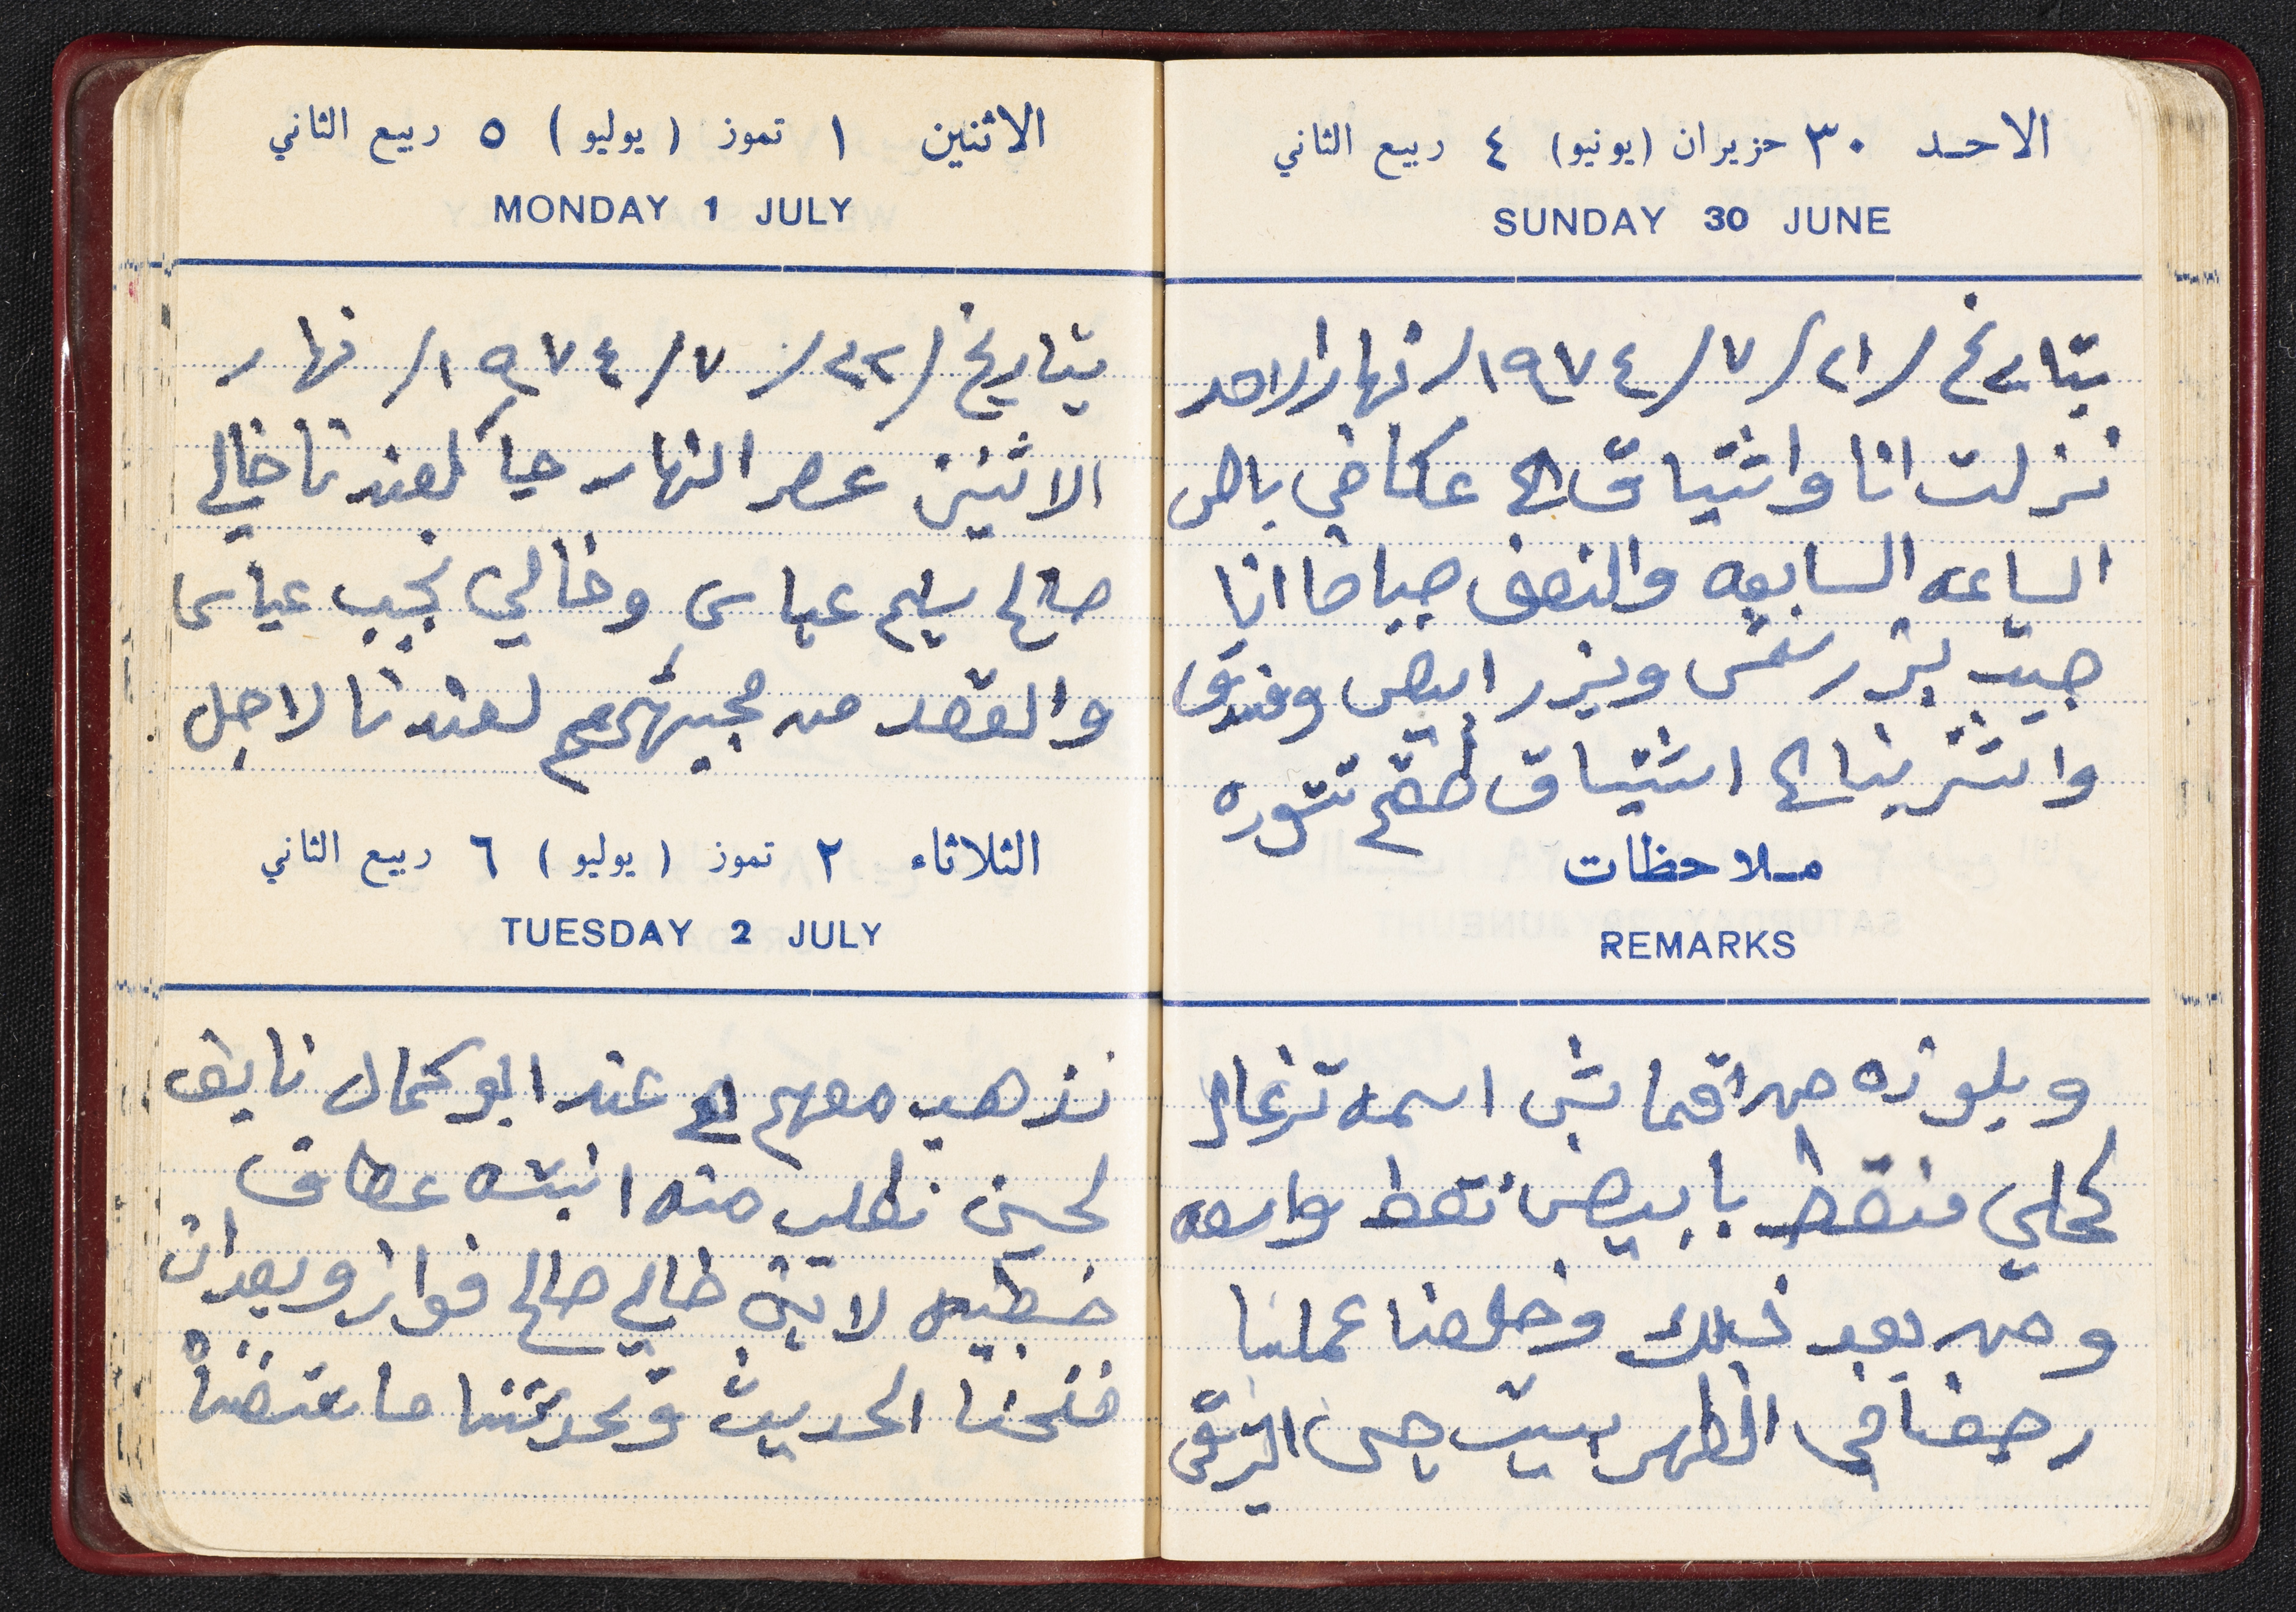 الاحد ٣٠ حزيران (يونيو) ٤ ربيع الثاني
SUNDAY 30 JUNE
بتاريخ /٢١/٧/١٩٧٤/ نهار الاحد
نزلت انا واشتياق الى عكا في باص
الساعه السابعه والنصف صباحا انا
جيت بزر شمس وبزر ابيض وفستق
واشترينا الى اشتياق طقم تنوره
ملاحظات
REMARKS
وبلوزه من قماش اسمه ترغال
كحلي منقط بابيض نقط واسعه
ومن بعد ذلك وخلصنا عملنا
رجعنا في الظهر بيت جن الزرقى
الاثنين ١ تموز (يوليو) ٥ ربيع الثاني
MONDAY 1 JULY
بتاريخ /٢٢/٧/١٩٧٤/ نهار
الاثنين عصر النهار جيا لعندنا خالي
صالح سليم عباس وخالي نجيب عباس
والقصد من مجيئهم لعندنا لاجل
الثلاثاء ٢ تموز (يوليو) ٦ ربيع الثاني
TUESDAY 2 JULY
نذهب معهم الى عند ابو كمال نايف
لحين نطلب منه ابنته عطاف
خطيبه لابن خالي صالح فواز وبعد ان
فتحنا الحديث وتحدثنا ما